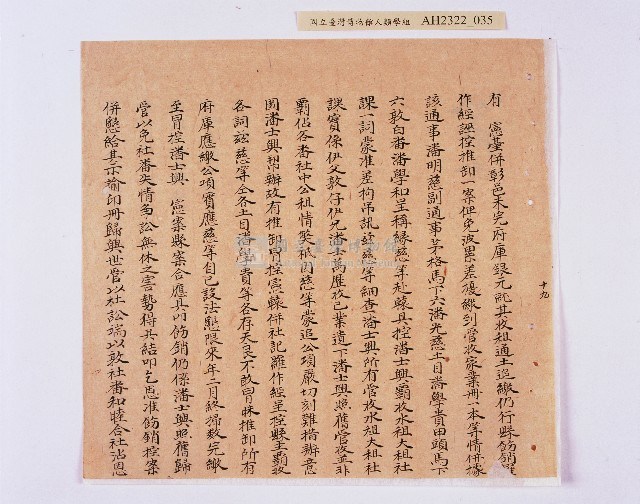 國立臺灣博物館人類學組 AH2322 035
有 憲臺併彰邑未完府庫銀元飭其收租通土迄繳仍行縣飭銷羅
作經誣控推卸一案但免波累羔復繳到管收家業冊一本等情併據
該通事潘明慈副通事茅格馬下六潘光慈土目潘學貴田頭馬下
六敦白番潘學和呈稱緣慈等赴轅具控潘士興霸收水租大租社
課一詞蒙准差拘吊訊茲慈等細查潘士興所有管收水租大租社
課實係伊父敦仔伊兄潘士萬應收己業遺下潘士興照舊管收並非
霸佔各番社中公租情緊秪因慈等蒙追公項嚴切刻難措辦意
圖潘士興幫辦故有推卸冒控憲轅併社記羅作經呈控縣主霸收
各詞茲慈等仝各土目潘學貴等各存天良不敢冒昧推卸所有
府庫應繳公項實應慈等自已設法懇限來年二月終掃數完繳
至冒控潘士興 憲案縣案合應具叩飭銷仍係潘士興照舊歸
管以免社番失情多訟無休之害勢得具結叩乞恩准飭銷控案
併懇給其示諭印冊歸興世管以杜訟端以敦社番和睦合社沾恩
十九